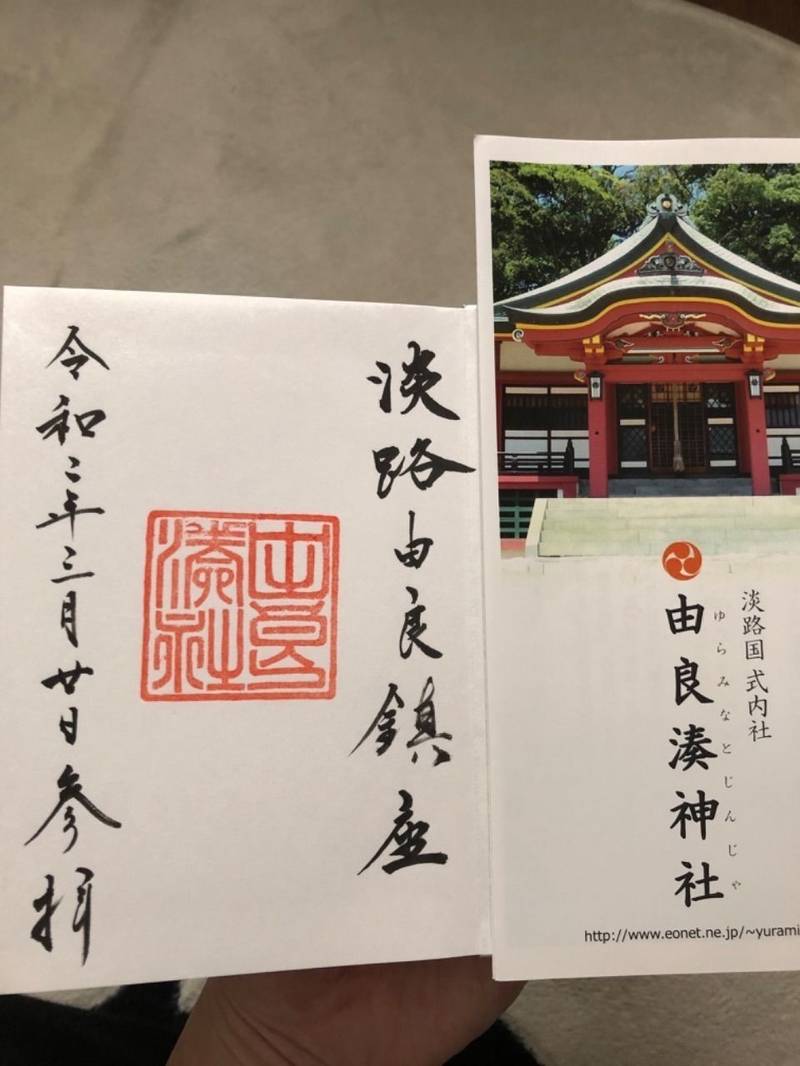 淡路由良鎮座
由良
湊社
令和二年三月廿日参拝
淡路国 式内社
ゆらみなとじんじゃ
由良湊神社
http://www.eonet.ne.jp/~yurami